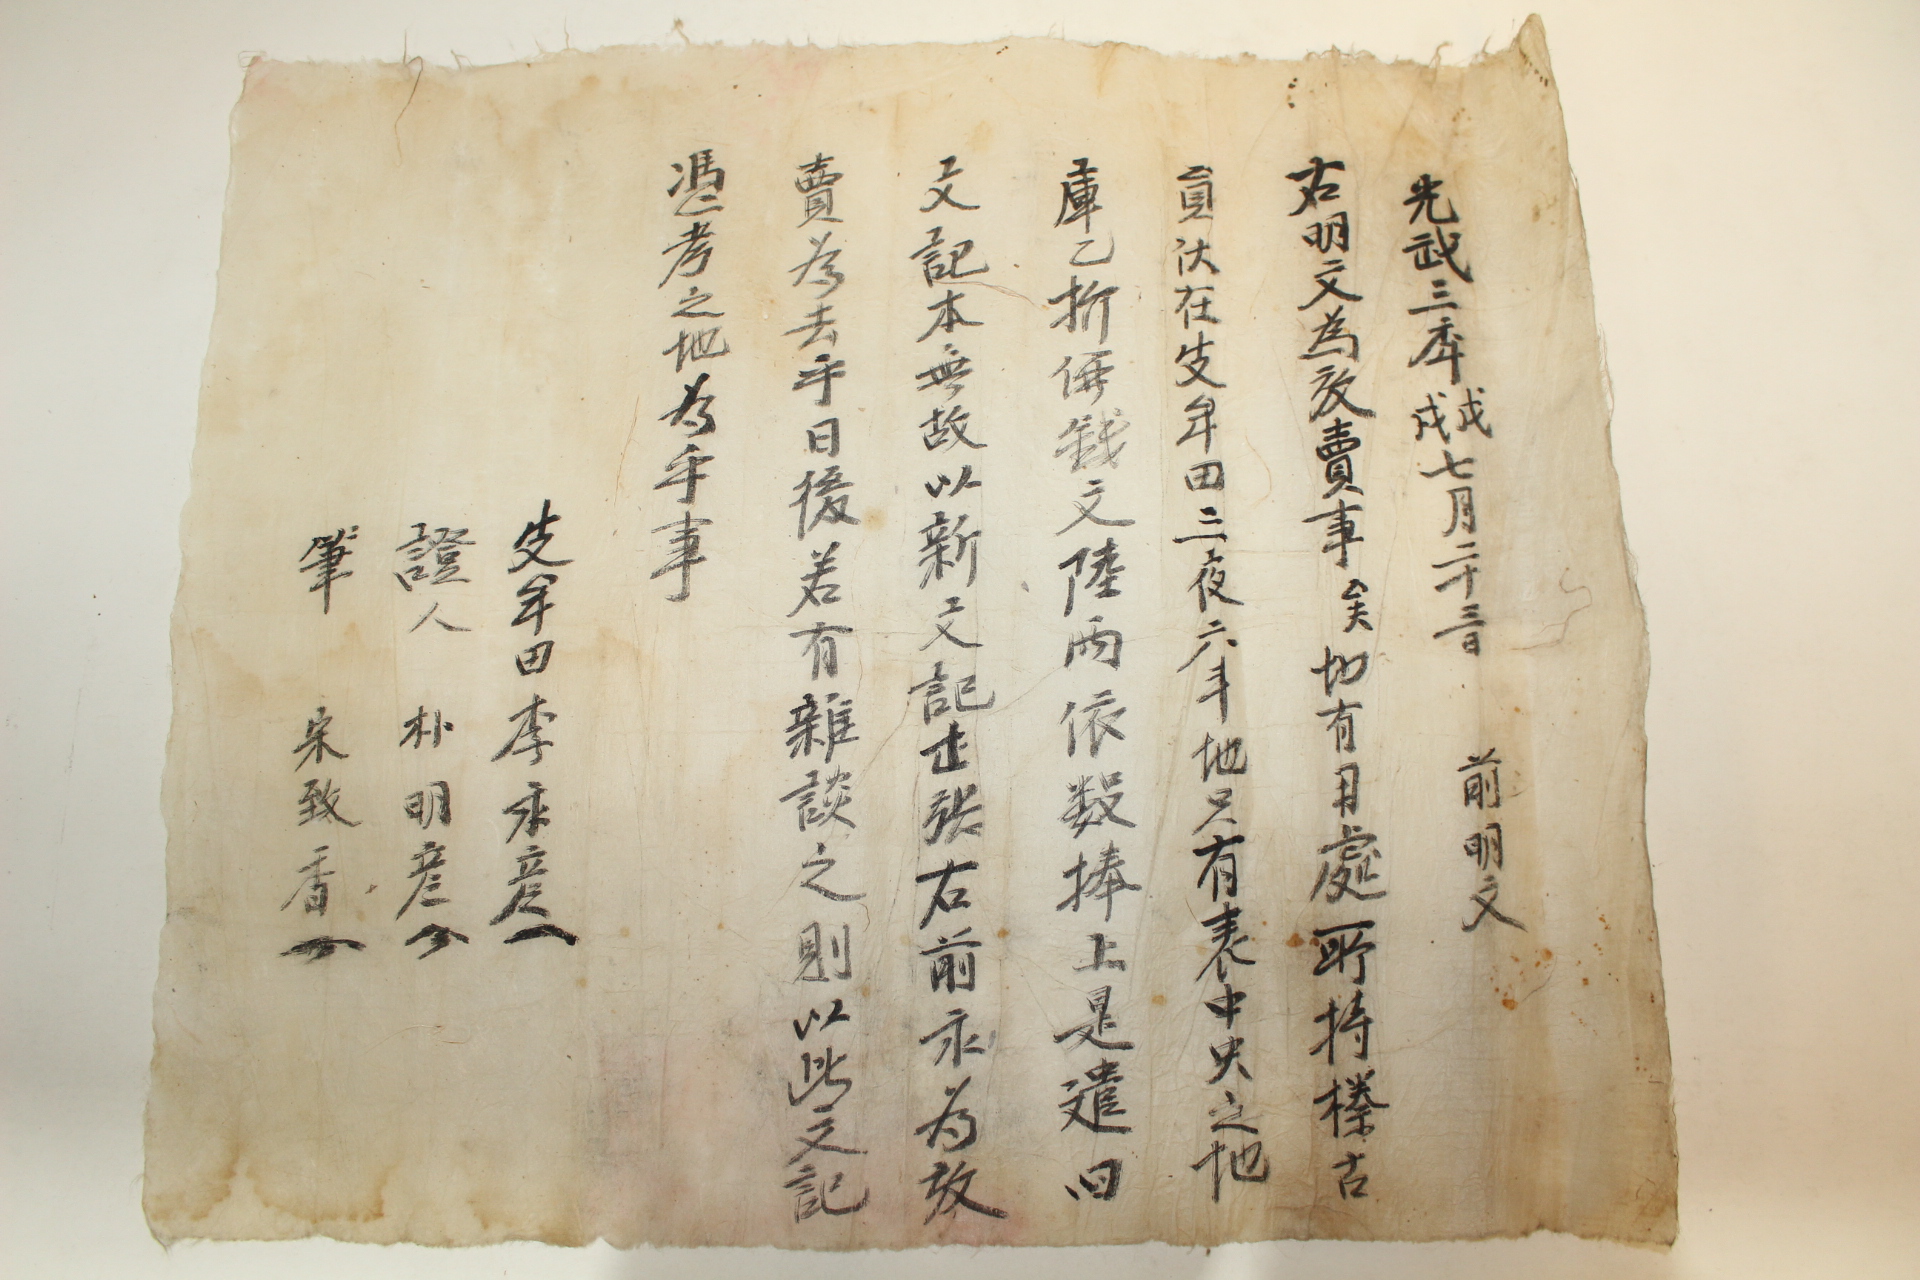 光武三年戊戌七月二十三日 前明文
右明文為放賣事矣切有用處所持樣古
員伏在 牟田三夜六斗地只有表中央之地
庫乙折価錢文陸兩依数捧上是遣曰
文記本無故以新文記 張右前永為放
賣為去乎日後若有雜談之則以此文記
憑考之地為乎事
牟田李永彦
證人 朴明彦
筆 宋致香